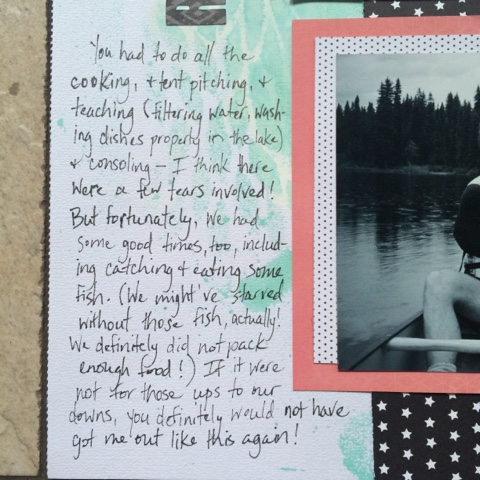 You had to do all the
cooking, + tent pitching, +
teaching (filtering water, wash-
ing dishes property in the lake)
+ consoling — I think there
were a few tears involved!
But fortunately, we had
some good times, too, includ-
ing catching + eating some
fish. (We might've starved
without those fish, actually!
We definitely did not pack
enough food!) If it were
not for those ups to our
downs, you definitely would not have
got me out like this again!